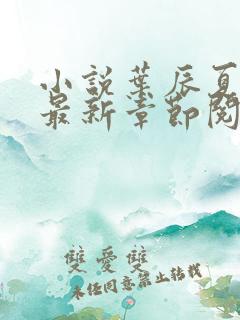 小说葉辰夏
最新章節閱
雙愛雙
未经同意禁止转载